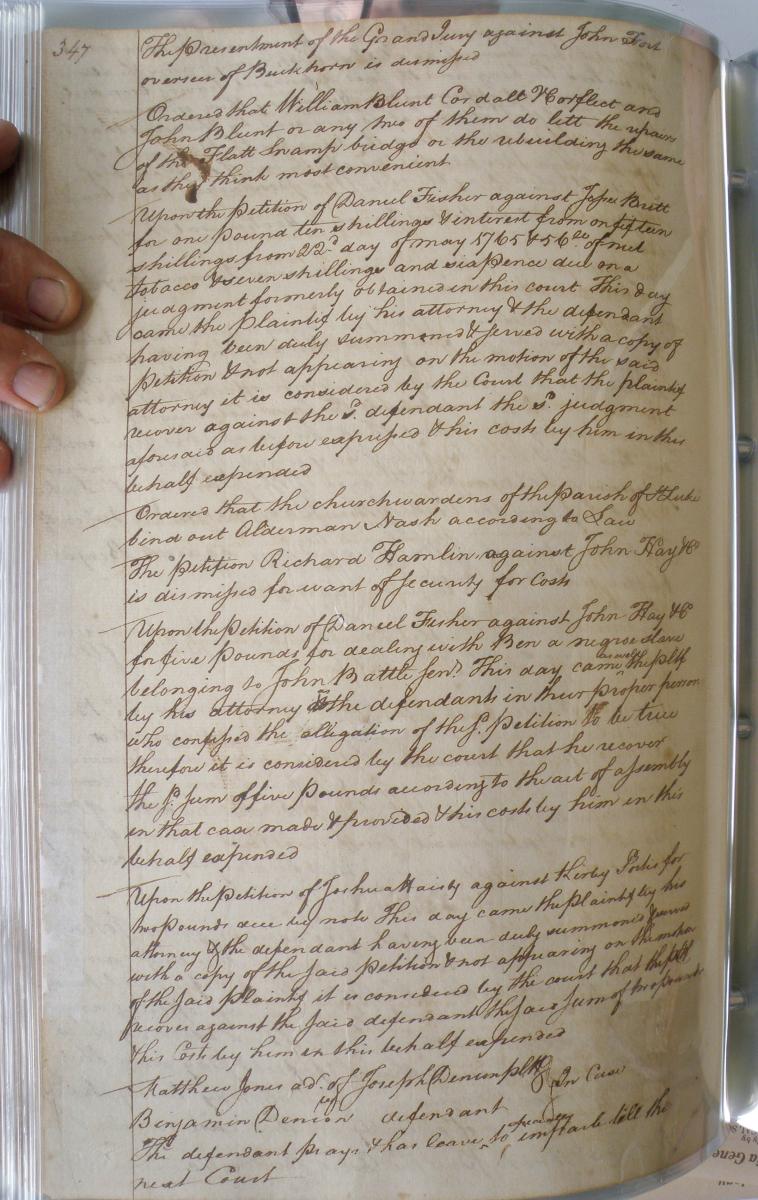 347
The Presentment of the Grand Jury against John Fort
overseer of Buckhorn is dismissed
Ordered that William Blunt Cordall Norfleet and
John Blunt or any two of them do lett the repairs
of the Flatt Swamp bridge or the rebuilding the same
as they think most convenient
Upon the Petition of Daniel Fisher against Jesse Britt
for one pound ten shillings & interest from on fifteen
shillings from 22d day of may 1765 & 56 of nett
tobacco & seven shillings and sixpence due on a
judgment formerly obtained in this court This day
came the Plaintif by his attorney & the defendant
having been duly summoned & served with a copy of
Petition & not appearing on the motion of the said
attorney it is considered by the Court that the plaintif
recover against the sd. defendant the sd. judgment
aforesaid as before expressed & his costs by him in this
behalf expended
Ordered that the churchwardens of the parish of St Luke
bind out Alderman Nash according to Law
The Petition Richard Hamlin against John Hay & Co
is dismissed for want of security for Costs
Upon the Petition of Daniel Fisher against John Hay & Co
for five Pounds for dealing with Ben a negroe slave
belonging to John Battle senr. This day came as well the pltf
by his attorney as the defendants in their proper person
who confessed the allegation of the sd. Petition to be true
therefore it is considered by the court that he recover
the sd. sum of five Pounds according to the act of assembly
in that case made & provided & his costs by him in this
behalf expended
Upon the petition of Joshua Haisty against Kirby for
two pounds due by note This day came the plaintif by his
attorney & the defendant having been duly summoned & served
with a copy of the said Petition & not appearing on the motion
of the said plaintif it is considered by the court that the pltf
recover against the said defendant the said sum of two pounds
& his Costs by him in this behalf expended
Matthew Jones adr. of Joseph Denson pltf
In Case
Benjamin Denson defendant
The defendant prays & has leave to imparle till the
next Court